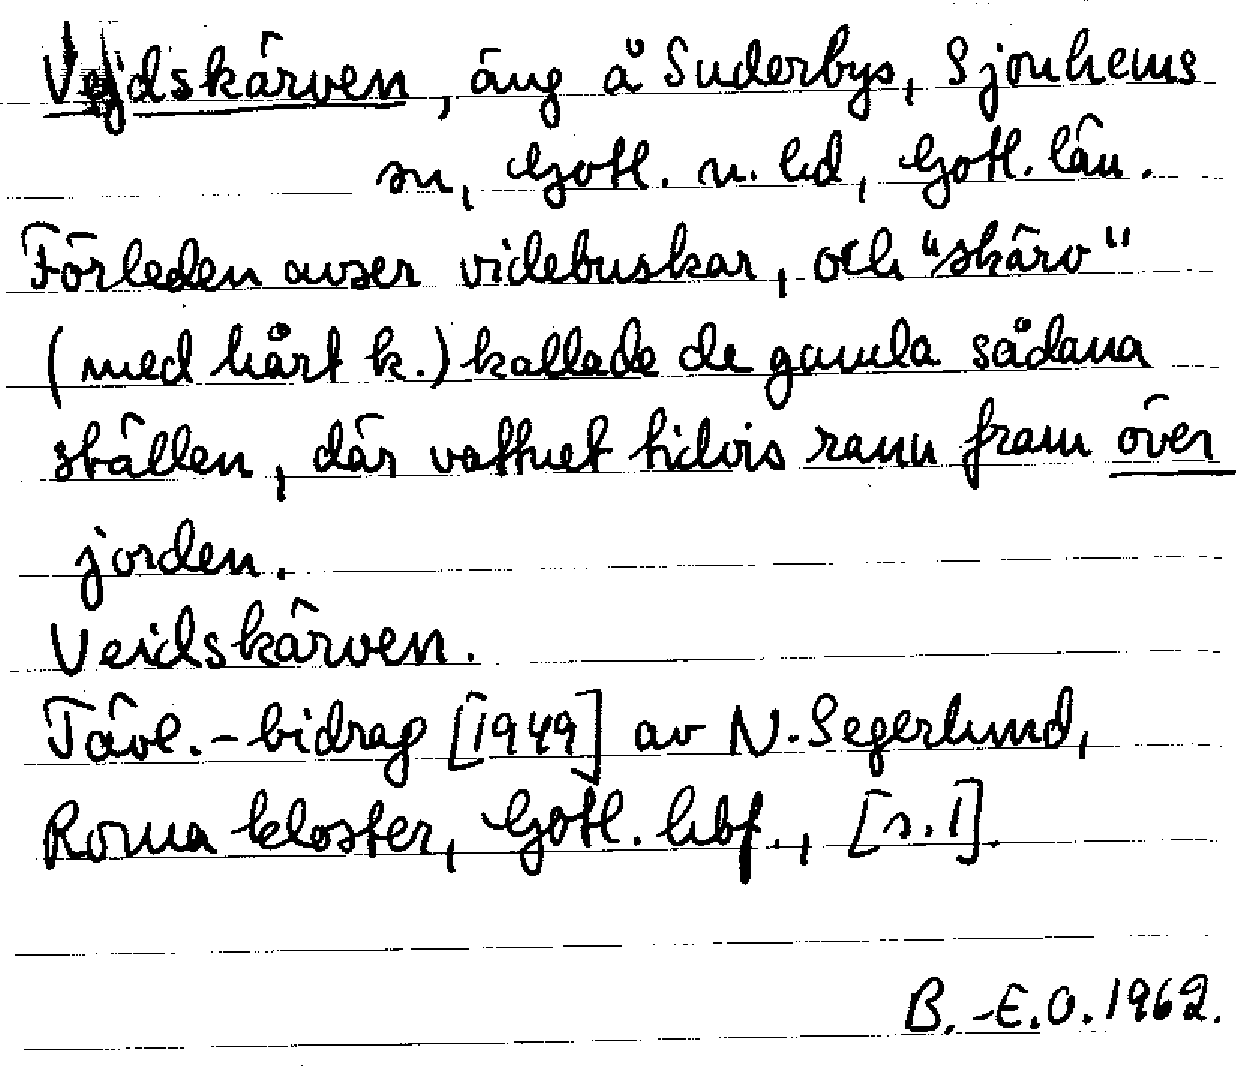 Vejdskärven, äng å Suderbys, Sjonhems
sn, Gotl. n. hd, Gotl. län.
Förleden avser videbuskar, och "skärv"
(med hårt k.) kallade de gamla sådana
ställen, där vattnet tidvis rann fram över
jorden.
Veidskärven.
Tävl.-bidrag [1949] av N. Segerlund,
Roma kloster, Gotl. hbf., [s. 1].
B.-E.O. 1962.